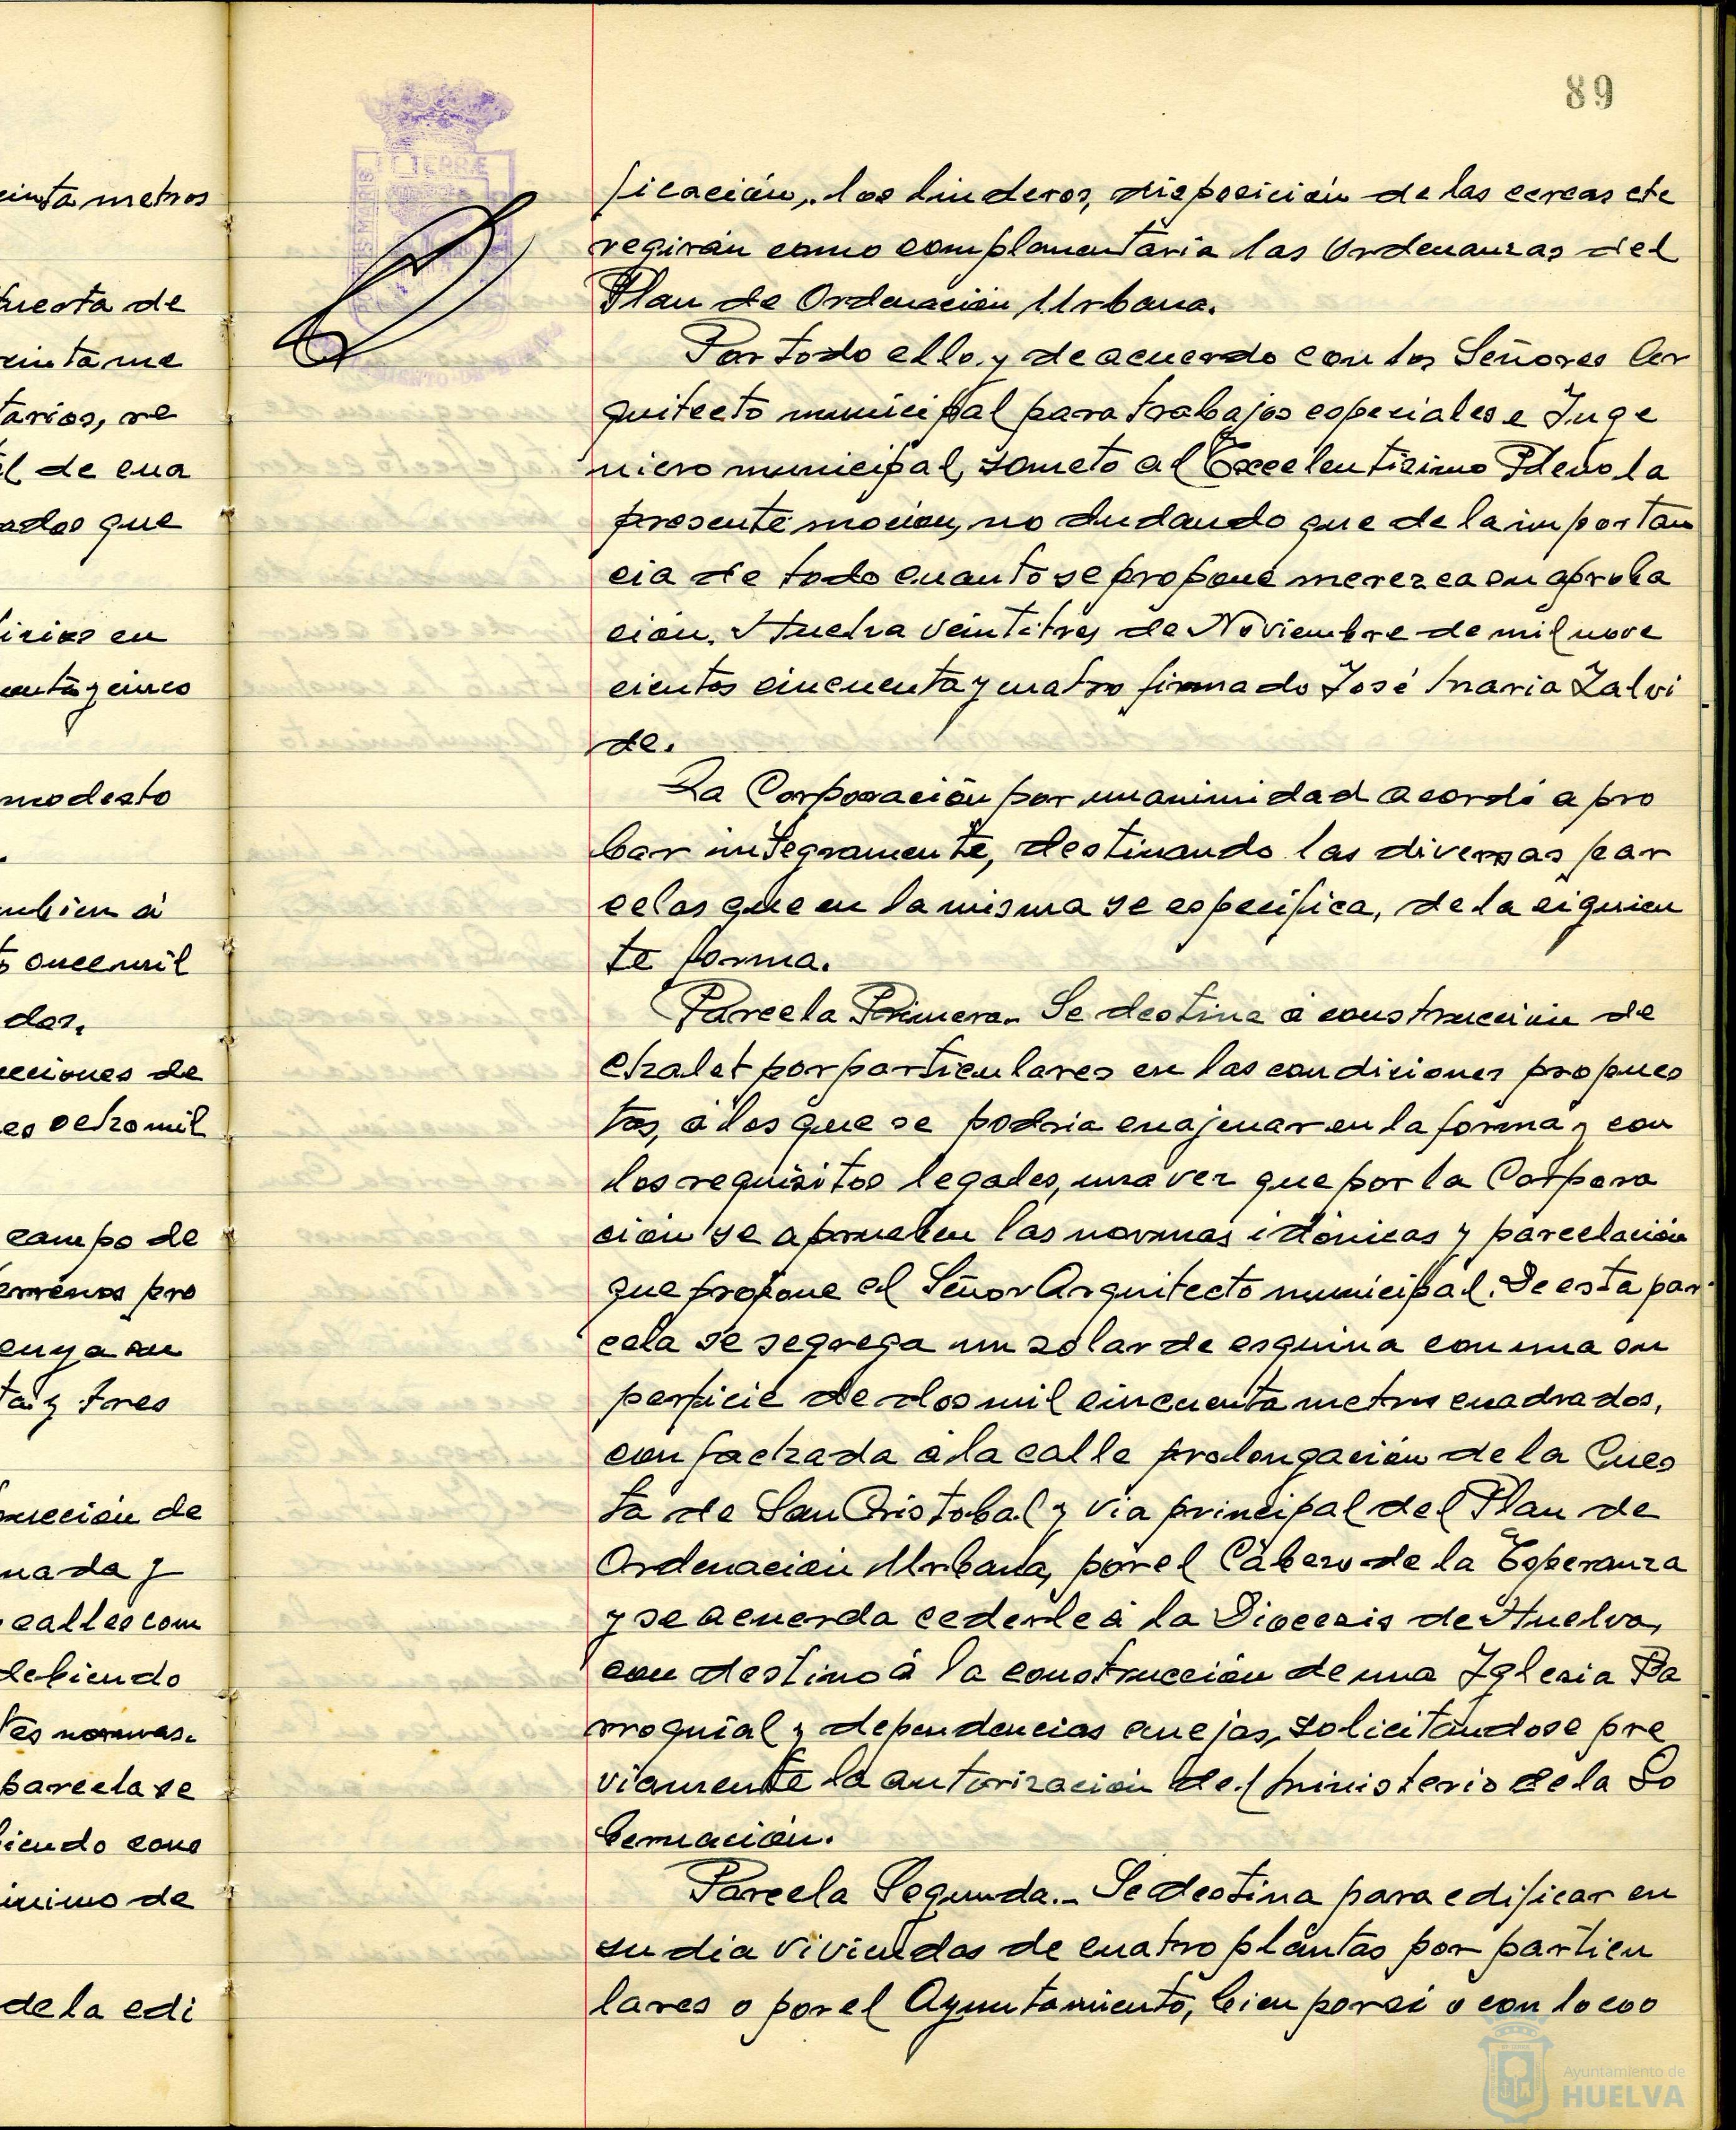 89
einta metros
puesta de
reinta me
tarios, re
el de cua
ados que
licias en
centa y cinco
modesto
mbien á
to oncemil
dos,
cciones de
es ocho mil
campo de
errenos pro
cuya su
ta y tres
rucción de
nada y
calles com
debiendo
tes normas.
parcela se
iendo cons
inimo de
de la edi
ficación, los linderos, disposición de las cercas etc
regirán como complementaria las Ordenanzas del
Plan de Ordenación Urbana.
Por todo ello, y de acuerdo con los Señores Ar
quitecto municipal para trabajos especiales e Inge
niero municipal, someto al Excelentisimo Pleno la
presente mocion, no dudando que de la importan
cia de todo cuanto se propone merezca su aproba
ción. Huelva veintitres de Noviembre de mil nove
cientos cincuenta y cuatro firmado José Maria Zalvi
de.
La Corporación por unanimidad acordó apro
bar integramente, destinando las diversas par
celas que en la misma se especifica, de la siguien
te forma.
Parcela Primera.- Se destina á construcción de
chalet por particulares en las condiciones propues
tas, á los que se podria enajenar en la forma y con
los requisitos legales, una vez que por la Corpora
ción se aprueben las normas idónicas y parcelación
que propone el Señor Arquitecto municipal. De esta par
cela se segrega un solar de esquina con una su
perficie de dos mil cincuenta metros cuadrados,
con fachada á la calle prolongación de la Cues
ta de San Cristobal y via principal del Plan de
Ordenación Urbana, por el Cabezo de la Esperanza
y se acuerda cederle á la Diocesis de Huelva,
con destino á la construcción de una Iglesia Pa
rroquial y dependencias anejas, solicitandose pre
viamente la autorización del Ministerio de la Go
bernación.
Parcela Segunda.- Se destina para edificar en
su dia viviendas de cuatro plantas por particu
lares o por el Ayuntamiento, bien por si o con locoo
TERRÆ
Ayuntamiento de
HUELVA